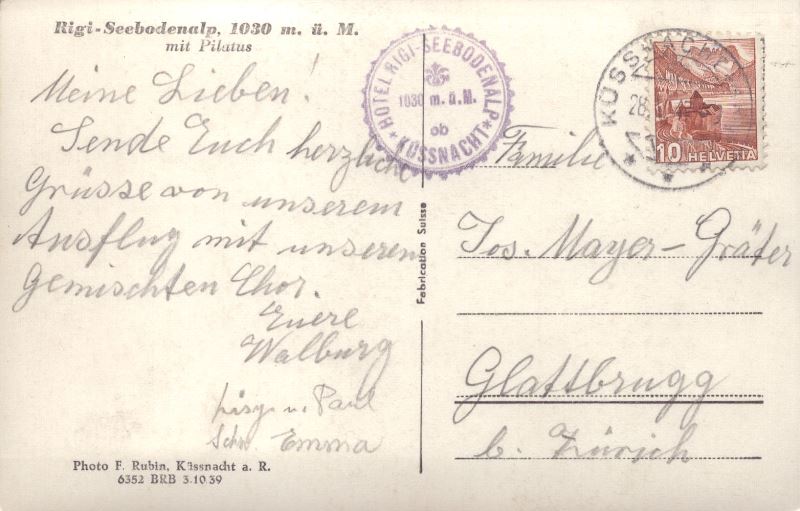 Rigi-Seebodenalp, 1030 m. ü. M.
mit Pilatus
Meine Lieben!
Sende Euch herzliche
Grüsse von unserem
Ausflug mit unseren
Gemischten Chor.
Euere
Walburg
u. Paul
Emma
Photo F. Rubin, Küssnacht a. R.
6352 BRB 3.10.39
HOTEL RIGI-SEEBODENALP
1030 m. ü. M.
ob
KÜSSNACHT
Fabrication Suisse
KÜSSNACHT
10 HELVETIA
Familie
Jos. Mayer-Gräter
Glattbrugg
b. Zürich